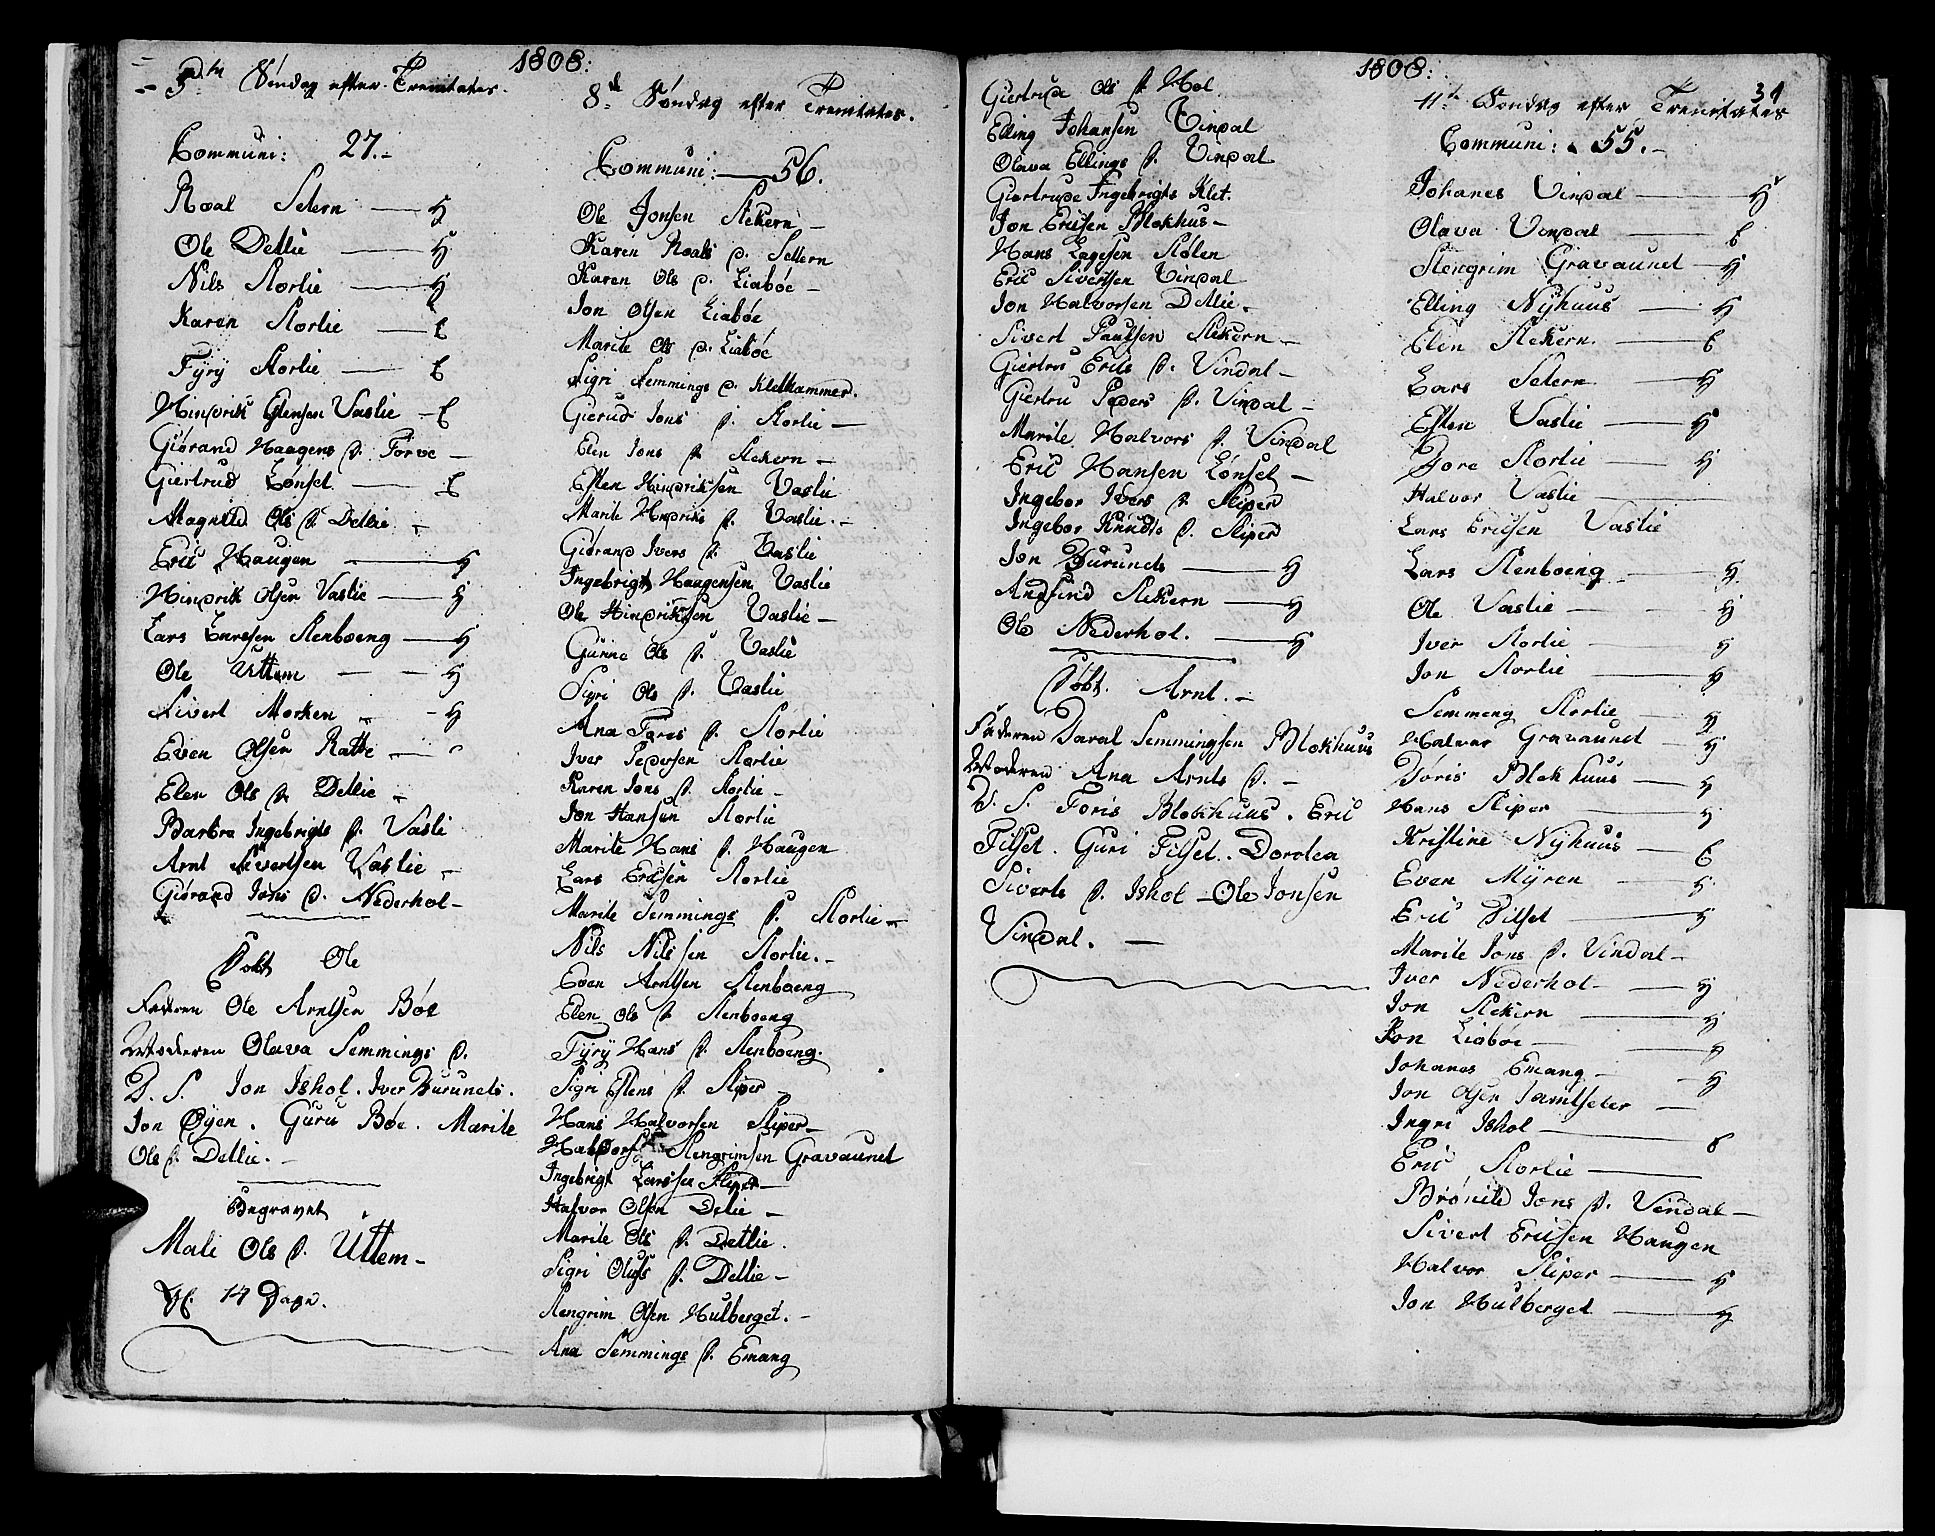 1808:
5te Søndag efter Trenitates.
Communi: 27.-
Roal Setern — H
Ole Detlie — H
Nils Storlie — H
Karen Storlie — E
Fyry Storlie — E
Hindrik Estensen Vaslie - E
Giørand Haagens D. Forve -
Giertrud Lønset. — E
Magnild Ols D. Detlie -
Eric Haugen — H
Hindrik Olsen Vaslie — H
Lars Larssen Stenboeng — H
Ole Uttem — H
Sivert Morken - H
Even Olsen Ratte -
Elen Ols D. Detlie -
Barbra Ingebrigts D. Vasli
Arnt Sivertsen Vaslie -
Giørand Jons D. Nederhol -
Døbt Ole
Faderen Ole Arntsen Bøe
Moderen Olava Semmings D.
D. S. Jon Ishol. Iver Burunets.
Jon Øyen. Guru Bøe. Marite
Ols D. Detlie. -
Begravet
Mali Ols D. Uttem -
14 Dage.
8de Søndag efter Trenitates.
Communi: — 56.
Ole Jonsen Stekern -
Karen Roals D. Settern
Karen Ols D. Liabøe -
Jon Olsen Liabøe
Marite Ols D. Liabøe
Sigri Semmings D. Kletkammer.
Gierud Jons D. Storlie -
Elen Jons D. Stekern -
Esten Hindriksen Vaslie
Marite Hindriks D. Vaslie. -
Giørand Ivers D. Vaslie
Ingebrigt Haagensen Vaslie
Ole Hindriksen Vaslie -
Gunne Ols D. Vaslie
Sigri Ols D. Vaslie
Ana Fares D. Storlie
Iver Pedersen Storlie
Karen Jons D. Storlie -
Jon Hansen Storlie
Marite Hans D. Haugen
Lars Ericsen Storlie
Marite Semmings D. Storlie -
Nils Nilssen Storlie. -
Even Arntsen Stenboeng
Elen Ols D. Stenboeng
Fyry Hans D. Stenboeng.
Sigri Estens D. Sliper -
Hans Halvorsen Sliper -
Haldors Stengrimsen Gravaunet
Ingebrigt Larssen Sliper -
Halvor Olsen Detlie -
Marite Ols D. Detlie.
Sigri Olufs D. Detlie -
Stengrim Olsen Hulberget. -
Ana Semmings D. Emang
1808:
34
Giertrude Ols D. Hol
Elling Johansen Vindal
Olava Ellings D. Vindal
Giertrude Ingebrigts Klet.
Jon Ericsen Blokhus -
Hans Lagesen Stølen
Eric Sivertsen Vindal
Jon Halvorsen Detlie -
Sivert Paulsen Stekern -
Giertru Erics D. Vindal -
Giertru Peders D. Vindal -
Marite Halvors D. Vindal
Eric Hansen Lønset -
Ingebor Ivers D. Sliper
Ingebor Knuds D. Sliper
Jon Burunets — H
Andsind Stekern — H
Ole Nederhol. — H
Døbt. Arnt. -
Faderen Daral Semmingsen Blokhuus
Moderen Ana Arnts D. -
D. S. Foris Blokhuus. Eric
Filset. Guri Filset. Dorotea
Siverts D. Ishol - Ole Jonsen
Vindal. -
11te Søndag efter Trenitates
Communi: 55. -
Johanes Vindal — H
Olava Vindal — E
Stengrim Gravaunet — H
Elling Nyhuus — H
Elen Stekern — E
Lars Setern — H
Esten Vaslie — H
Tore Storlie — H
Halvor Vaslie —
Lars Ericsen Vaslie
Lars Stenboeng — H
Ole Vaslie — H
Iver Storlie — H
Jon Storlie — H
Semmeng Storlie — H
Halvor Gravaunet — H
Føris Blokhuus — H
Hans Sliper — H
Kristine Nyhuus — E
Even Myren — H
Eric Filset — H
Marite Jons D. Vindal -
Iver Nederhol - H
Jon Stekern — H
Jon Liabøe — H
Johanes Emang — H
Jon Olsen Samtseter —
Ingri Ishol — E
Eric Storlie —
Brønild Jons D. Vindal -
Sivert Ericsen Haugen
Halvor Sliper — H
Jon Hulberget — H